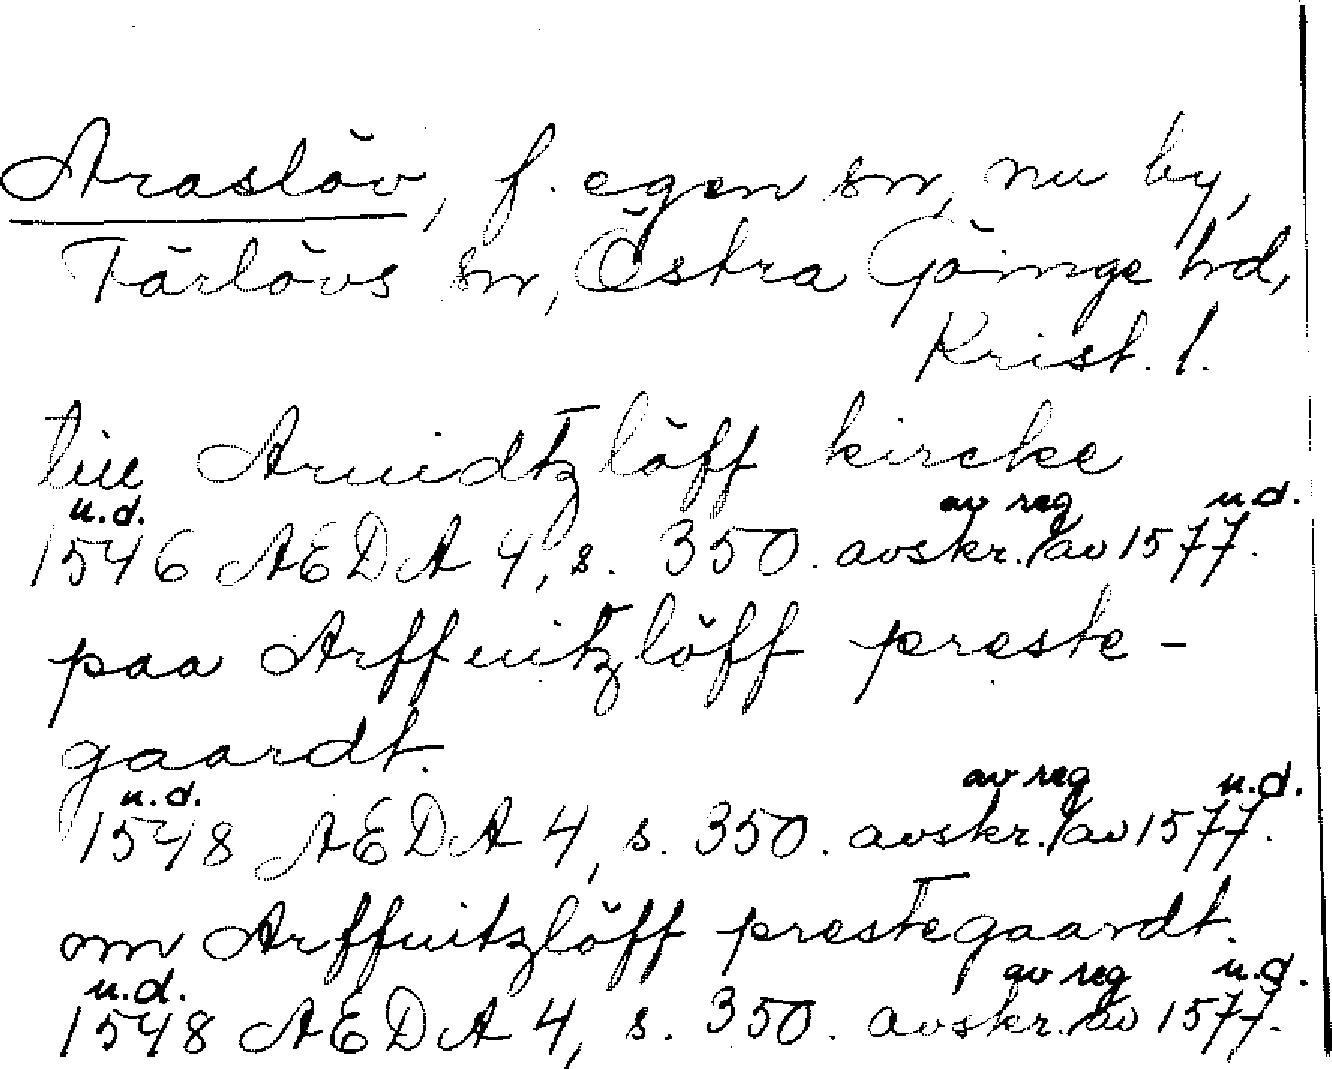 Araslöv, f. egen sn, nu by,
Färlövs sn, Östra Göinge hd,
Krist. l.
till Aruidtzlöff kircke
u.d. av reg u.d.
1546 AEDA 4, s. 350. avskr. av 1577.
paa Arffuitzlöff preste-
gaardt.
u.d. av reg u.d.
1548 AEDA 4, s. 350. avskr. av 1577.
om Arffuitzlöff prestegaardt.
u.d. av reg u.d.
1548 AEDA 4, s. 350. avskr. av 1577.